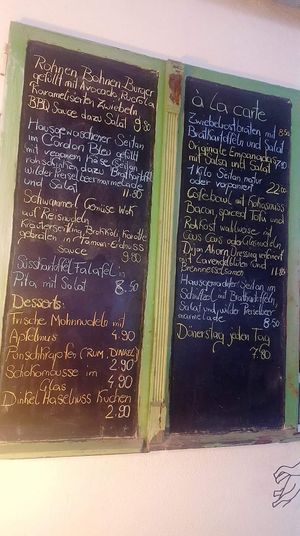 Rohnen, Bohnen-Burger
gefüllt mit Avocado, Rucola,
karamelisierten Zwiebeln
BBQ Sauce dazu Salat 9.80
Hausgemachter Seitan
im Cordon Bleu gefüllt
mit veganem Käse, Seitan
dazu Bratkartoffel
wilder Preiselbeermarmelade
und Salat 11.80
Gemüse Wok
auf Reisnudeln
Kräuterseitling, Brokkoli, Karotte
gebraten in Tamari-Erdnuss
Sauce 9.80
Süsskartoffel Falafel in
Pita mit Salat 8.50
Desserts:
Frische Mohnnudeln mit
Apfelmus 4.90
Punschkrapfen (RUM, DINKEL) 2.90
Schokomousse im
Glas 4.90
Dinkel Haselnuss Kuchen
2.90
à La carte
Zwiebelrostbraten mit 8.50
Bratkartoffeln und Salat
Originale Empanadas
mit Salsa und Salat 7.80
1 Kilo Seitan natur
oder mariniert 22.00
Cafébowl mit Kokosnuss
Bacon, spiced Tofu und
Rohkost wahlweise mit
Cous Cous oder
Dijon Ahorn Dressing verfeinert
mit Lavendelblüten und
Brennnesselsamen 11.80
Hausgemachter Seitan im
Schnitzel mit Bratkartoffeln,
Salat und wilder Preiselbeer
marmelade
Dönerstag jeden Tag
7.80